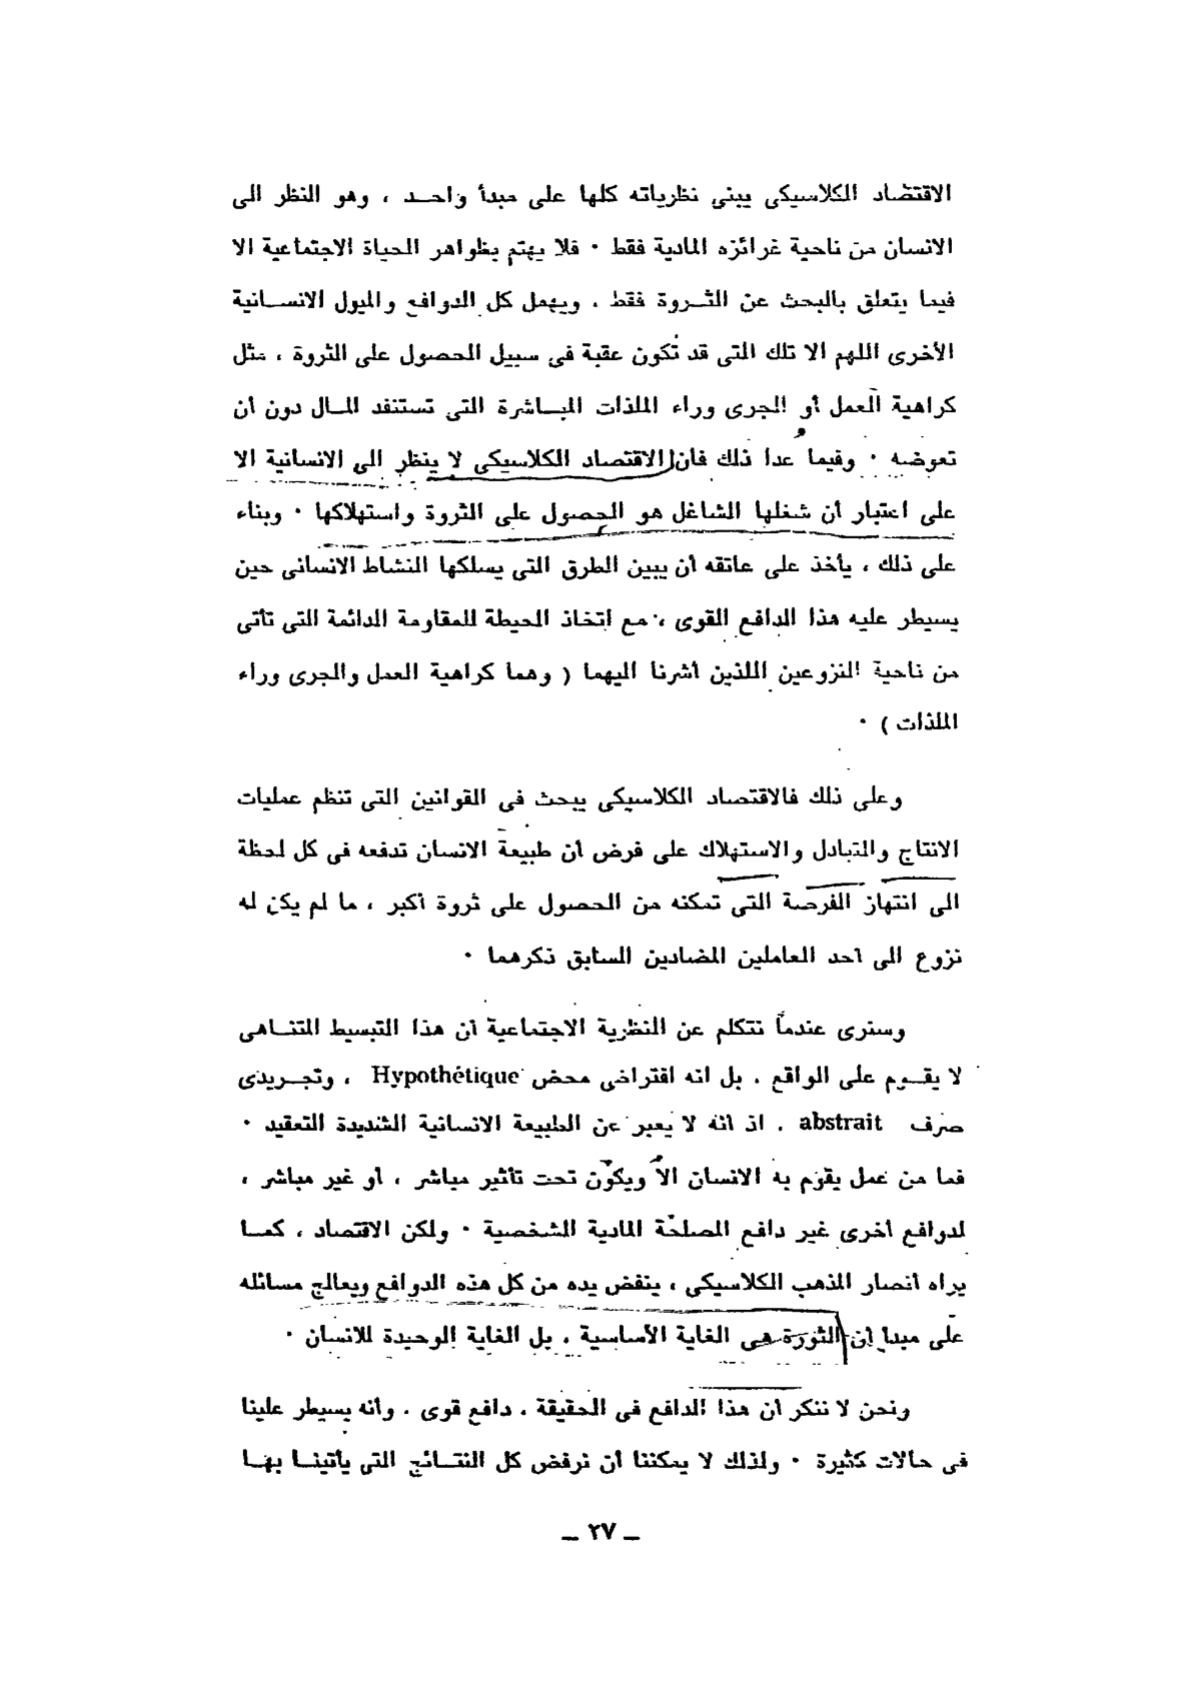 الاقتصاد الكلاسيكى يبنى نظرياته كلها على مبدأ واحد ، وهو النظر الى
الانسان من ناحية غرائزه المادية فقط . فلا يهتم بظواهر الحياة الاجتماعية الا
فيما يتعلق بالبحث عن الثروة فقط . ويهمل كل الدوافع والميول الانسانية
الأخرى اللهم الا تلك التى قد تكون عقبة فى سبيل الحصول على الثروة ، مثل
كراهية العمل أو الجرى وراء الملذات المباشرة التى تستنفد المال دون أن
تعوضه . وفيما عدا ذلك فان الاقتصاد الكلاسيكى لا ينظر الى الانسانية الا
على اعتبار أن شغلها الشاغل هو الحصول على الثروة واستهلاكها . وبناء
على ذلك ، يأخذ على عاتقه أن يبين الطرق التى يسلكها النشاط الانسانى حين
يسيطر عليه هذا الدافع القوى ، مع اتخاذ الحيطة للمقاومة الدائمة التى تأتى
من ناحية النزوعين اللذين أشرنا اليهما ( وهما كراهية العمل والجرى وراء
الملذات ) .
وعلى ذلك فالاقتصاد الكلاسيكى يبحث فى القوانين التى تنظم عمليات
الانتاج والتبادل والاستهلاك على فرض أن طبيعة الانسان تدفعه فى كل لحظة
الى انتهاز الفرصة التى تمكنه من الحصول على ثروة أكبر ، ما لم يكن له
نزوع الى أحد العاملين المضادين السابق ذكرهما .
وسنرى عندما نتكلم عن النظرية الاجتماعية أن هذا التبسيط المتناهى
لا يقوم على الواقع . بل انه افتراضى محض Hypothétique ، وتجريدى
صرف abstrait . اذ انه لا يعبر عن الطبيعة الانسانية الشديدة التعقيد .
فما من عمل يقوم به الانسان الا ويكون تحت تأثير مباشر ، أو غير مباشر ،
لدوافع أخرى غير دافع المصلحة المادية الشخصية . ولكن الاقتصاد ، كما
يراه أنصار المذهب الكلاسيكى ، ينفض يده من كل هذه الدوافع ويعالج مسائله
على مبدأ أن الثورة هى الغاية الأساسية ، بل الغاية الوحيدة للانسان .
ونحن لا ننكر أن هذا الدافع فى الحقيقة . دافع قوى . وأنه يسيطر علينا
فى حالات كثيرة . ولذلك لا يمكننا أن نرفض كل النتائج التى يأتينا بها
ــ ٢٧ ــ